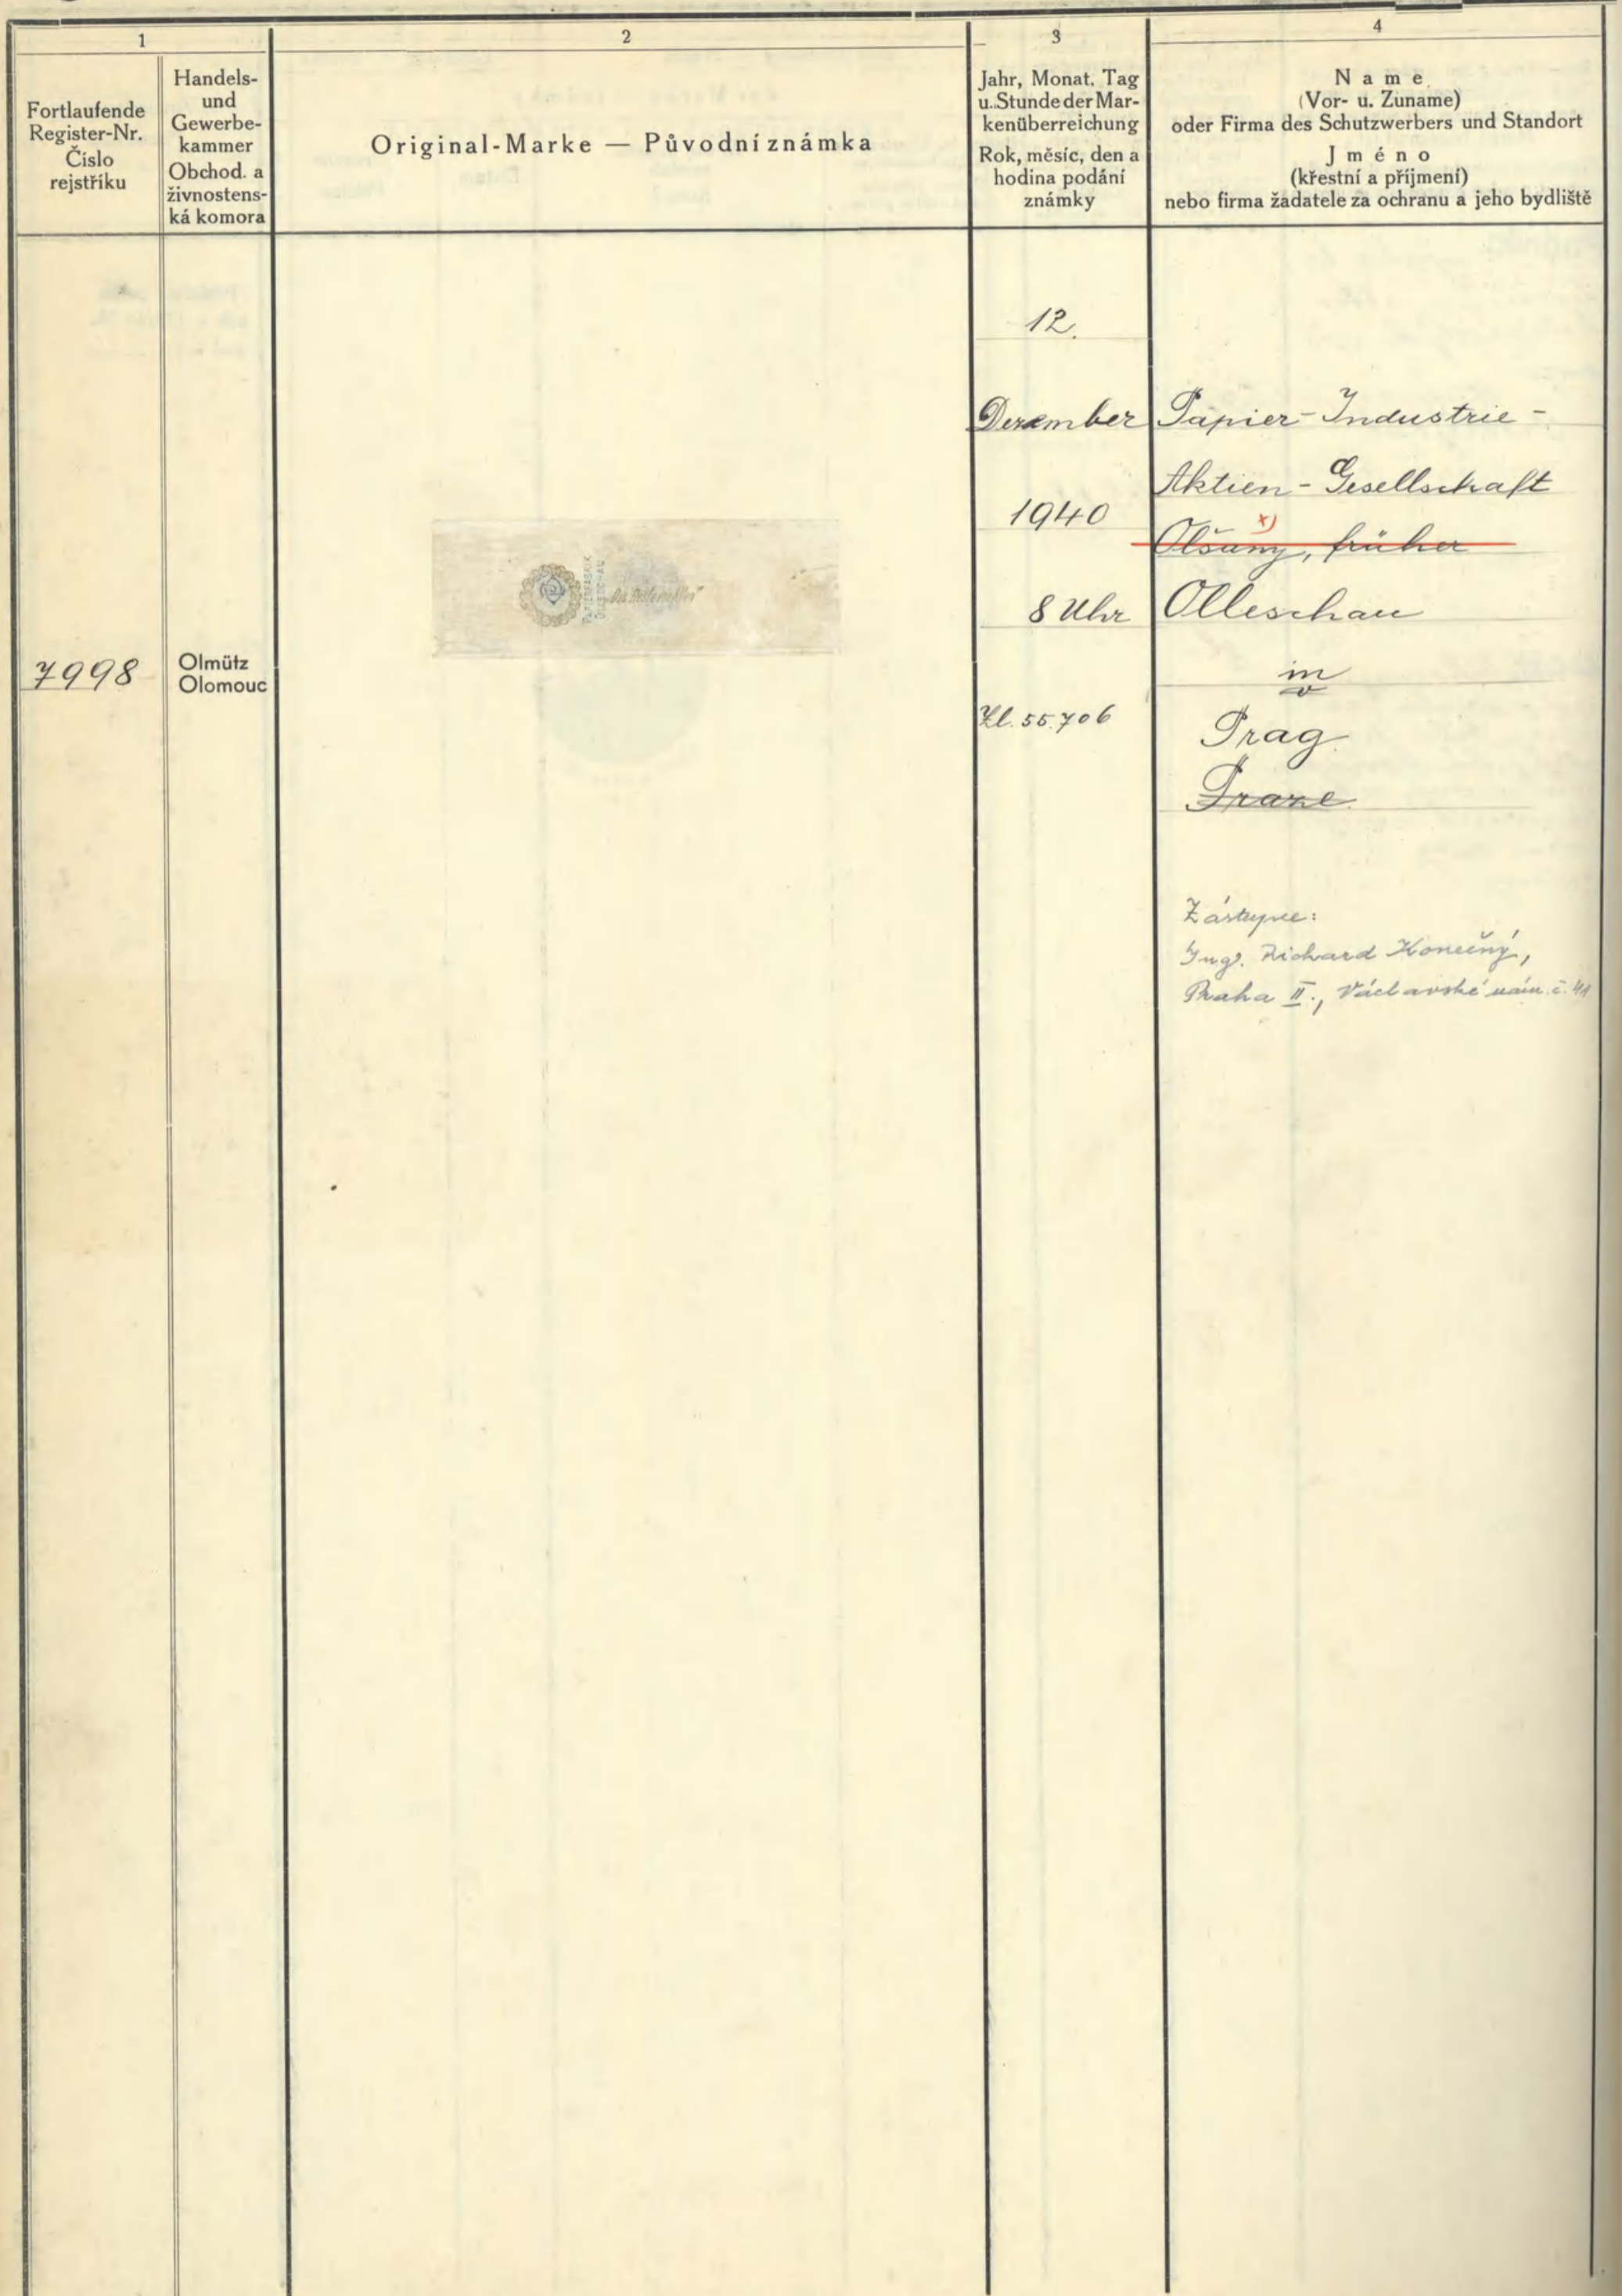 1
2
3
4
Fortlaufende
Register-Nr.
Číslo
rejstříku
Handels-
und
Gewerbe-
kammer
Obchod. a
živnostens-
ká komora
Original-Marke — Původní známka
Jahr, Monat, Tag
u. Stunde der Mar-
kenüberreichung
Rok, měsíc, den a
hodina podání
známky
Name
(Vor- u. Zuname)
oder Firma des Schutzwerbers und Standort
Jméno
(křestní a příjmení)
nebo firma žadatele za ochranu a jeho bydliště
7998
Olmütz
Olomouc
PAPIERFABRIK
OLLESCHAU
12.
Dezember
1940
8 Uhr
Zl. 55.706
Papier-Industrie-
Aktien-Gesellschaft
x)
Olšany, früher
Olleschau
in
v
Prag
Praze
Zástupce:
Ing. Richard Konečný,
Praha II., Václavské nám. č. 41